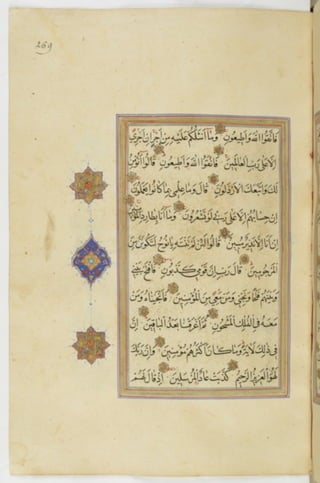 269
فَاتَّقُوا اللهَ وَاَطِيعُونِ وَمَا اَسْئَلُكُمْ عَلَيْهِ مِنْ اَجْرٍ اِنْ اَجْرِيَ
اِلَّا عَلٰى رَبِّ الْعَالَمِينَ فَاتَّقُوا اللهَ وَاَطِيعُونِ قَالُوا اَنُؤْمِنُ
لَكَ وَاتَّبَعَكَ الْاَرْذَلُونَ قَالَ وَمَا عِلْمِي بِمَا كَانُوا يَعْمَلُونَ
اِنْ حِسَابُهُمْ اِلَّا عَلٰى رَبِّي لَوْ تَشْعُرُونَ وَمَا اَنَا بِطَارِدِ الْمُؤْمِنِينَ
اِنْ اَنَا اِلَّا نَذِيرٌ مُبِينٌ قَالُوا لَئِنْ لَمْ تَنْتَهِ يَا نُوحُ لَتَكُونَنَّ مِنَ
الْمَرْجُومِينَ قَالَ رَبِّ اِنَّ قَوْمِي كَذَّبُونِ فَافْتَحْ بَيْنِي
وَبَيْنَهُمْ فَتْحًا وَنَجِّنِي وَمَنْ مَعِيَ مِنَ الْمُؤْمِنِينَ فَاَنْجَيْنَاهُ وَمَنْ
مَعَهُ فِي الْفُلْكِ الْمَشْحُونِ ثُمَّ اَغْرَقْنَا بَعْدُ الْبَاقِينَ اِنَّ
فِي ذٰلِكَ لَاٰيَةً وَمَا كَانَ اَكْثَرُهُمْ مُؤْمِنِينَ وَاِنَّ رَبَّكَ
لَهُوَ الْعَزِيزُ الرَّحِيمُ كَذَّبَتْ عَادٌ الْمُرْسَلِينَ اِذْ قَالَ لَهُمْ